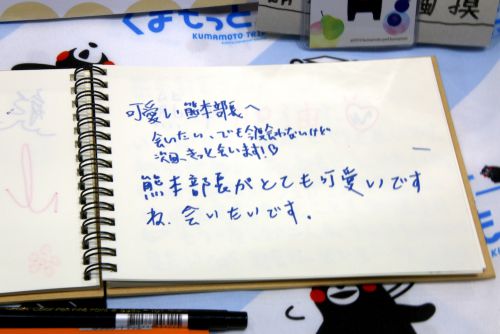 くまもっと
KUMAMOTO
可愛い熊本部長へ
会いたい、でも今度会わないけど
次回、きっと会います!
熊本部長がとても可愛いです
ね、会いたいです。